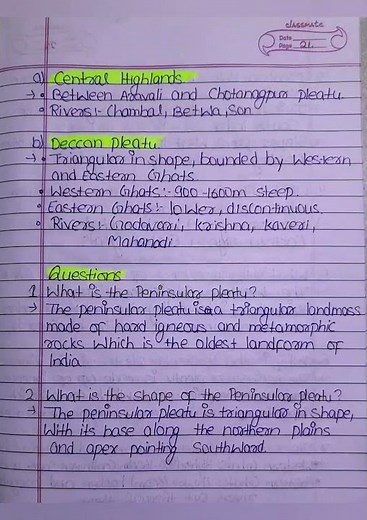 classmate
Date
Page 21.
a) Central Highlands
→ • Between Aravali and Chotanagpur pleatu.
• Rivers:- Chambal, Betwa, Son
b) Deccan pleatu
→ • Triangular in shape, bounded by Western
and Eastern Ghats.
• Western Ghats:- 900-1600m steep.
• Eastern Ghats:- lower, discontinuous.
• Rivers:- Godavari, krishna, kaveri,
Mahanadi.
Questions
1 What is the Peninsular pleatu?
→ The peninsular pleatu is a triangular landmass
made of hard igneous and metamorphic
rocks which is the oldest landform of
India
2 What is the shape of the Peninsular pleatu?
→ The peninsular pleatu is triangular in shape,
With its base along the northern plains
and apex pointing Southward.